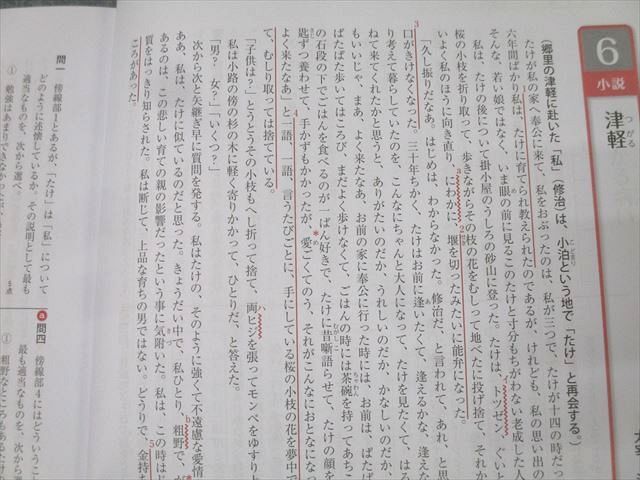 6
小説
津軽
つる
(郷里の津軽に赴いた「私」(修治)は、小泊という地で「たけ」と再会する。)
たけが私の家へ奉公に来て、私をおぶったのは、私が三つで、たけが十四の時だっ
六年間ばかり私は、たけに育てられ教えられたのであるが、けれども、私の思い出の
そんな、若い娘ではなく、いま眼の前に見るこのたけと寸分もちがわない老成した人
私は、たけの後について掛小屋のうしろの砂山に登った。たけは、トツゼン、ぐいと
桜の小枝を折り取って、歩きながらその枝の花をむしって地べたに投げ捨て、それか
いよく私のほうに向き直り、にわかに、堰を切ったみたいに能弁になった。
「久し振りだなあ。はじめは、わからなかった。修治だ、と言われて、あれ、と思
口がきけなくなった。三十年ちかく、たけはお前に逢いたくて、逢えるかな、逢えな
り考えて暮らしていたのを、こんなにちゃんと大人になって、たけを見たくて、はる
ねて来てくれたかと思うと、ありがたいのだか、うれしいのだか、かなしいのだか、
もいいじゃ、まあ、よく来たなあ、お前の家に奉公に行った時には、お前は、ぱたぱ
ぱたぱた歩いてはころび、まだよく歩けなくて、ごはんの時には茶碗を持ってあちこ
の石段の下でごはんを食べるのが一ばん好きで、たけに昔噺語らせて、たけの顔を
匙ずつ養わせて、手かずもかかったが、愛ごくてのう、それがこんなにおとなになっ
よく来たなあ」と一語、一語、言うたびごとに、手にしている桜の小枝の花を夢中で
て、むしり取っては捨てている。
「子供は?」とうとうその小枝もへし折って捨て、両ヒジを張ってモンペをゆすり上
私は小路の傍の杉の木に軽く寄りかかって、ひとりだ、と答えた。
「男? 女?」「いくつ?」
次から次と矢継ぎ早に質問を発する。私はたけの、そのように強くて不遠慮な愛情
ああ、私は、たけに似ているのだと思った。きょうだい中で、私ひとり、粗野で、が
あるのは、この悲しい育ての親の影響だったという事に気附いた。私は、この時はじ
質をはっきり知らされた。私は断じて、上品な育ちの男ではない。どうりで、金持ち
ころがあった。
問一
傍線部1とあるが、「たけ」は「私」について
どのように述懐しているか、その説明として最も
適当なものを、次から選べ。
5点
① 勉強はあまりできなかった
a 問四
傍線部4にはどういうこ
最も適当なものを、次から選
① 粗野なところもあるけれ